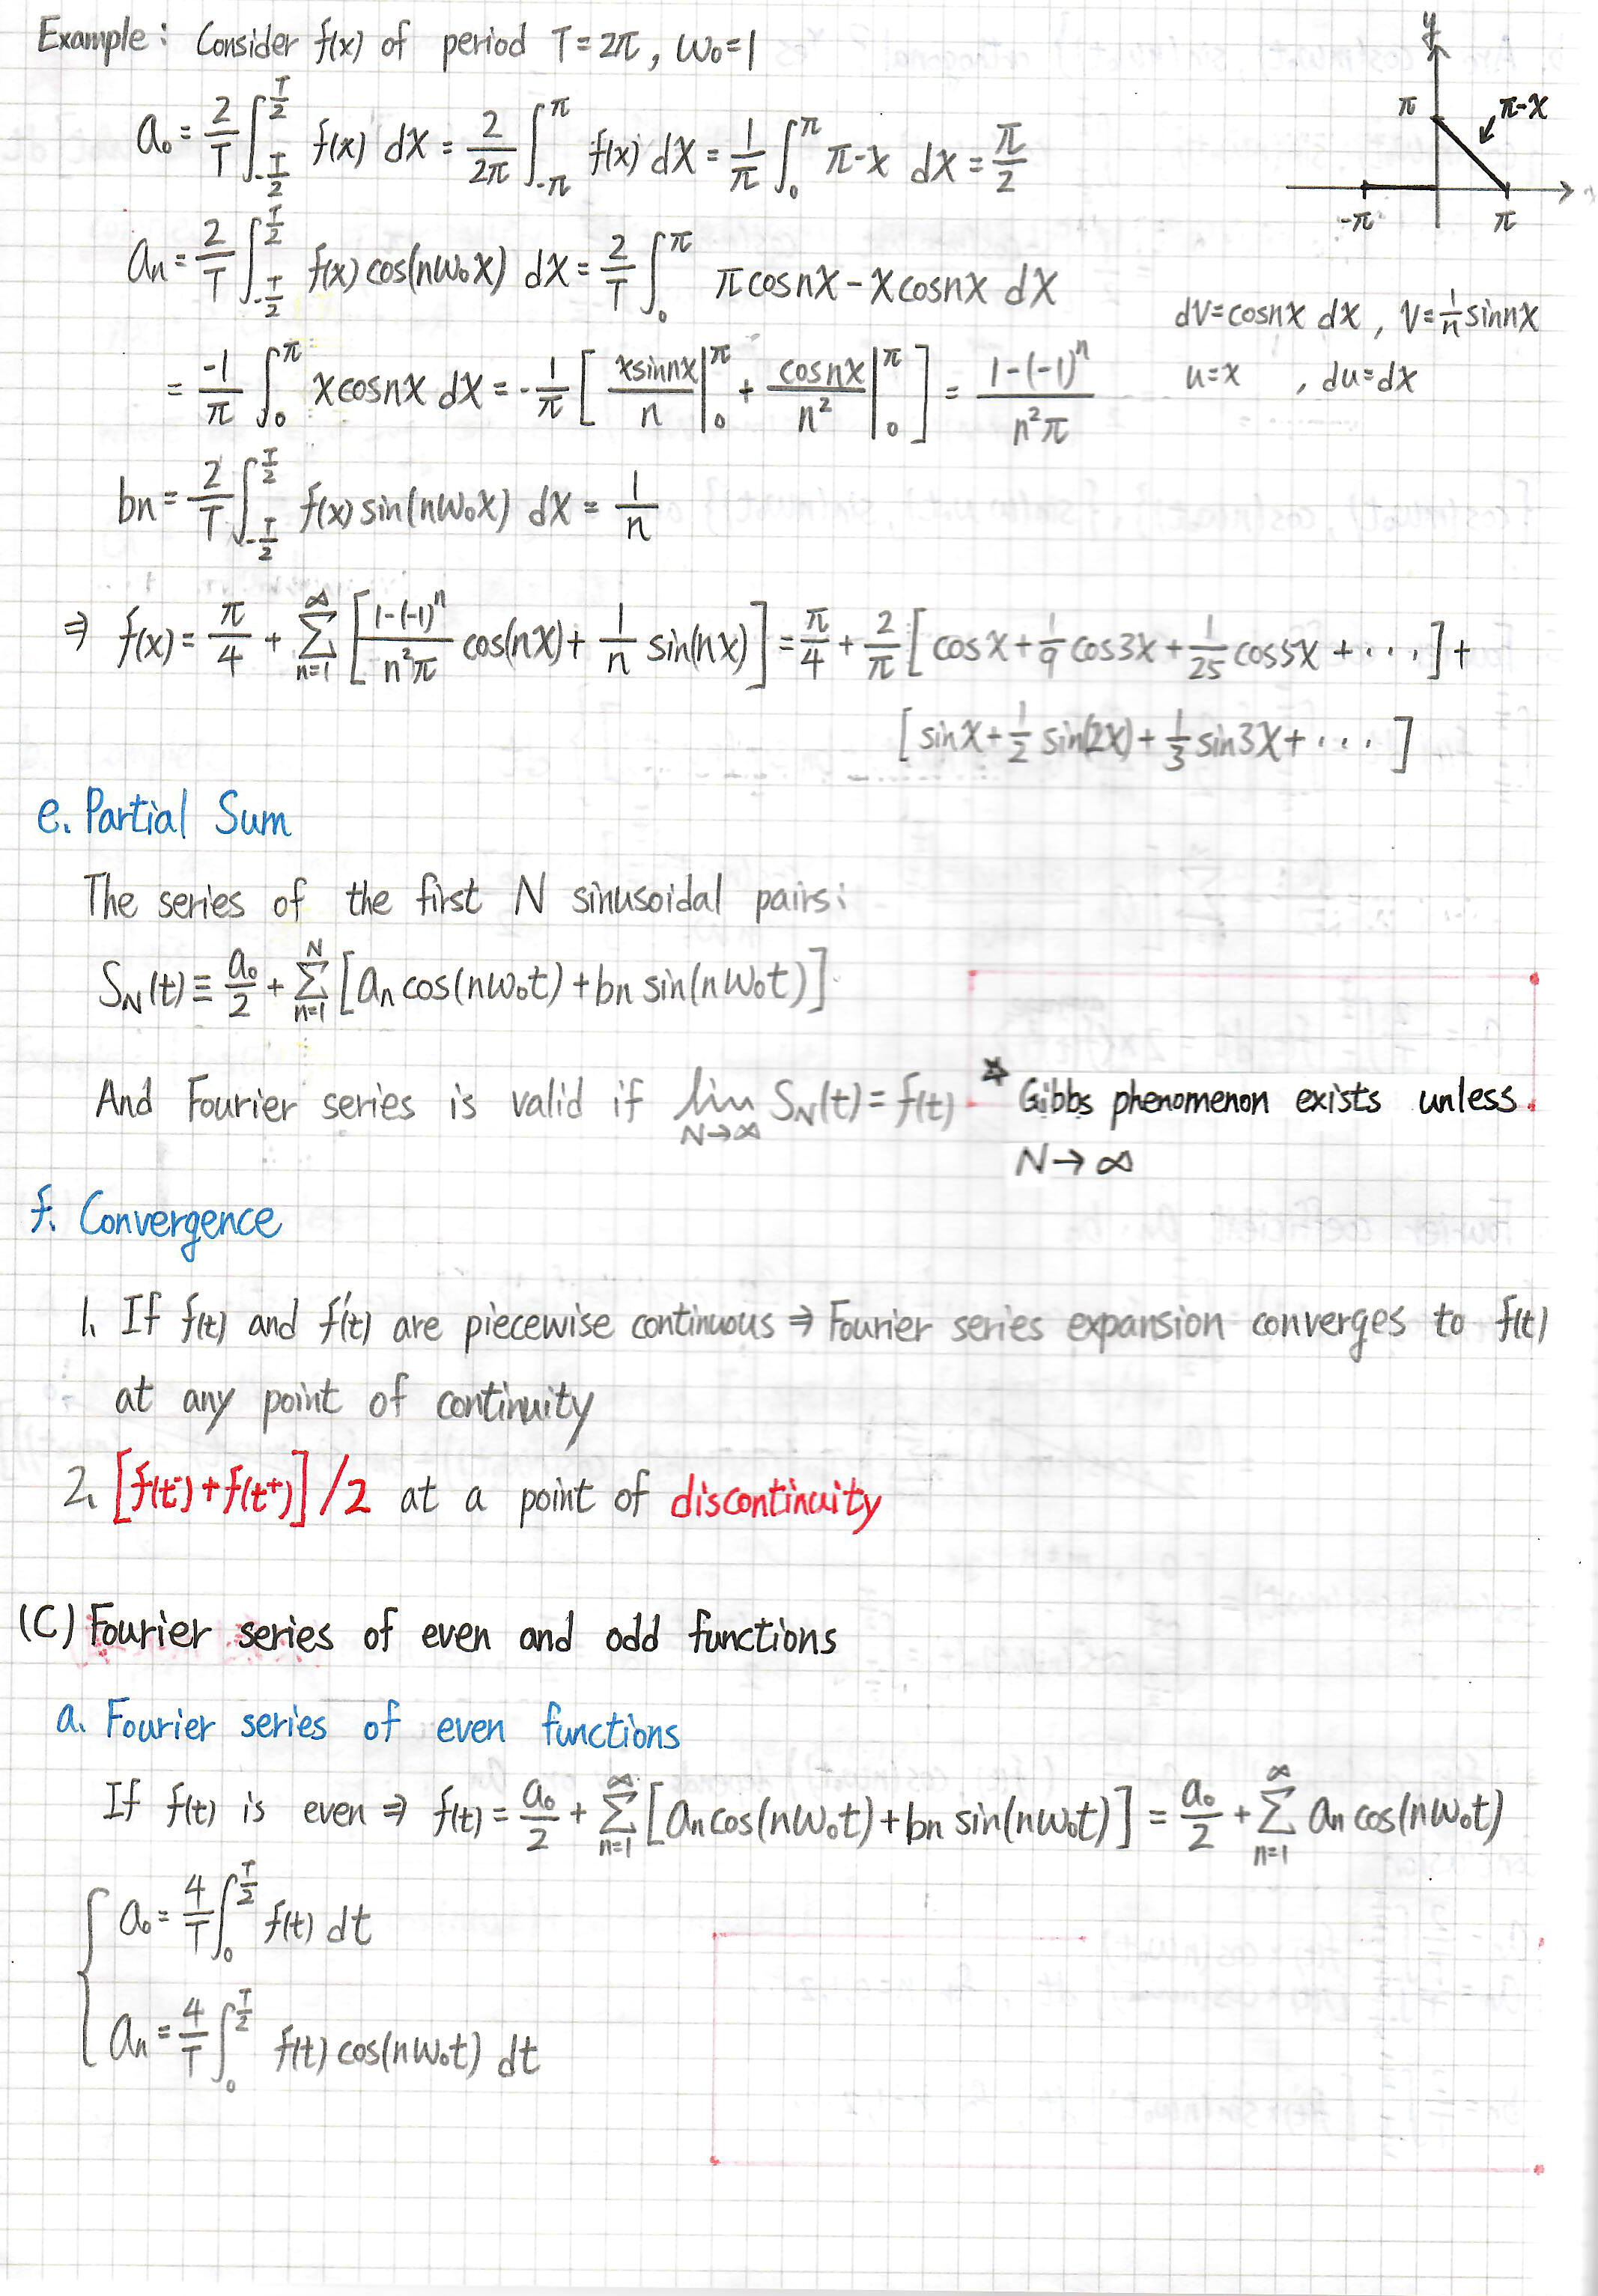 Example: Consider f(x) of period T=2π, ω₀=1
y
π
π-x
-π
π
a₀ = 2/T ∫_{-T/2}^{T/2} f(x) dx = 2/2π ∫_{-π}^{π} f(x) dx = 1/π ∫_0^π π-x dx = π/2
aₙ = 2/T ∫_{-T/2}^{T/2} f(x) cos(nω₀x) dx = 2/T ∫_0^π πcosnx - xcosnx dx
dv=cosnx dx, v=1/n sinnx
= -1/π ∫_0^π xcosnx dx = -1/π [ xsinnx/n |_0^π + cosnx/n² |_0^π ] = 1-(-1)ⁿ / n²π
u=x , du=dx
bn = 2/T ∫_{-T/2}^{T/2} f(x) sin(nω₀x) dx = 1/n
⇒ f(x) = π/4 + Σ_{n=1}^∞ [ 1-(-1)ⁿ / n²π cos(nx) + 1/n sin(nx) ] = π/4 + 2/π [ cosx + 1/9 cos3x + 1/25 cos5x + ··· ] +
[ sinx + 1/2 sin(2x) + 1/3 sin3x + ··· ]
e. Partial Sum
The series of the first N sinusoidal pairs:
S_N(t) ≡ a₀/2 + Σ_{n=1}^N [aₙ cos(nω₀t) + bn sin(nω₀t)]
And Fourier series is valid if lim_{N→∞} S_N(t) = f(t) ☆ Gibbs phenomenon exists unless
N→∞
f. Convergence
1. If f(t) and f'(t) are piecewise continuous ⇒ Fourier series expansion converges to f(t)
at any point of continuity
2. [f(t⁻)+f(t⁺)]/2 at a point of discontinuity
(C) Fourier series of even and odd functions
a. Fourier series of even functions
If f(t) is even ⇒ f(t) = a₀/2 + Σ_{n=1}^∞ [aₙ cos(nω₀t) + bn sin(nω₀t)] = a₀/2 + Σ_{n=1}^∞ aₙ cos(nω₀t)
{ a₀ = 4/T ∫_0^{T/2} f(t) dt
aₙ = 4/T ∫_0^{T/2} f(t) cos(nω₀t) dt